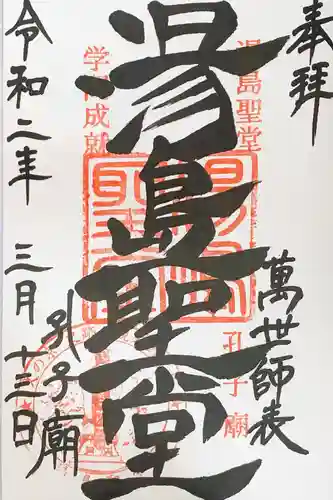 奉拝
萬世師表
湯島聖堂
湯島聖堂
孔子廟
学問成就
孔子廟
令和二年 三月 十三日